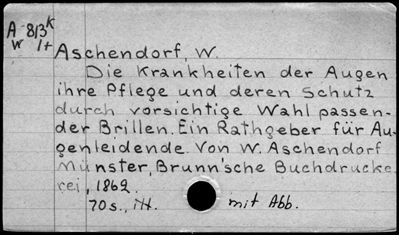 A 813 K
W 1+
Aschendorf, W.
Die Krankheiten der Augen
ihre Pflege und deren Schutz
durch vorsichtige Wahl passen-
der Brillen. Ein Rathgeber für Au-
genleidende Von W. Aschendorf
Münster, Brunn'sche Buchdrucke
rei, 1862.
70 s., mit Abb.